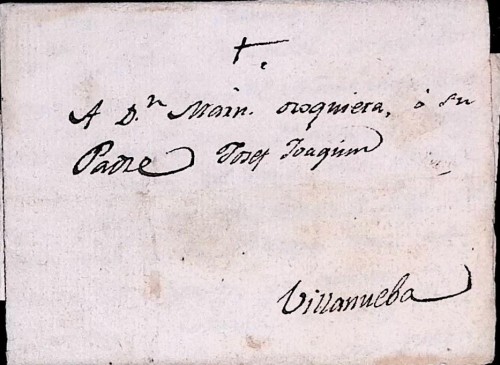 +
A D.n Marn. orquiera, ó su
Padre Josef Joaquim
Villanueba